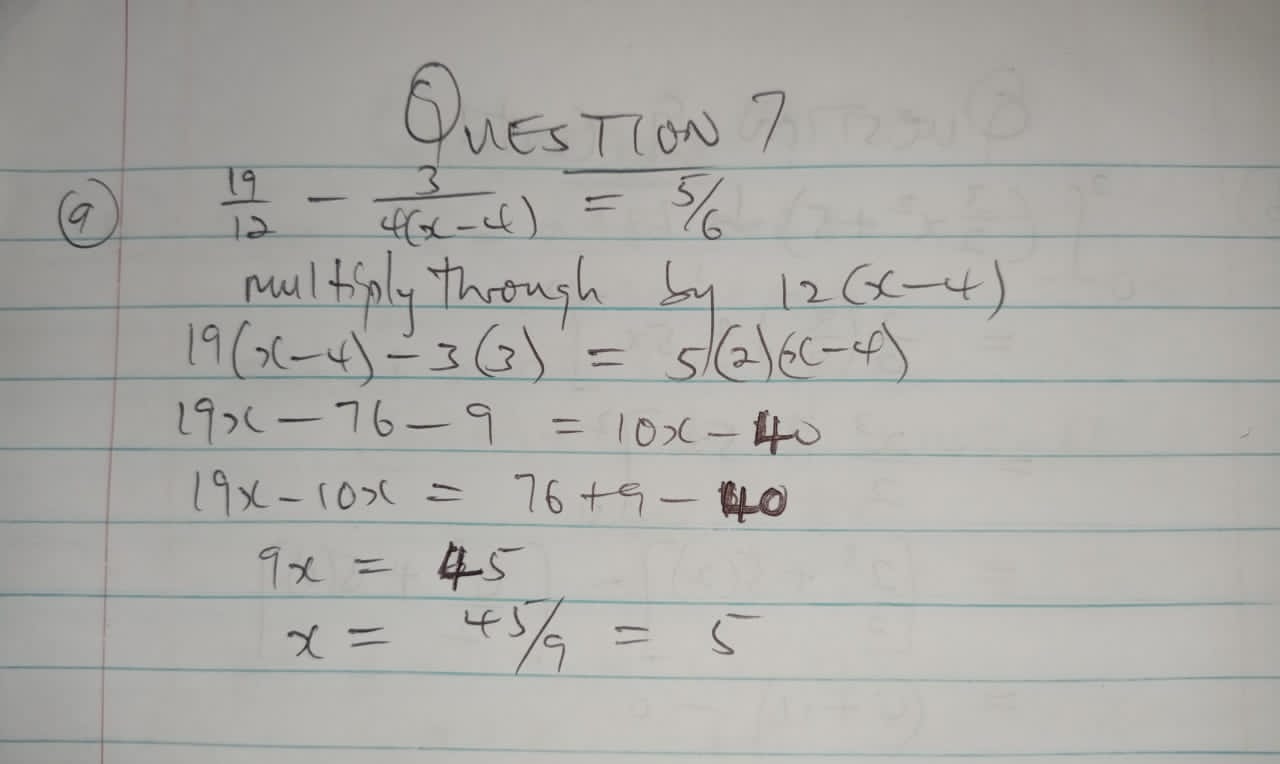 QUESTION 7
(a) 19/12 - 3/4(x-4) = 5/6
multiply through by 12(x-4)
19(x-4) - 3(3) = 5(2)(x-4)
19x - 76 - 9 = 10x - 40
19x - 10x = 76 + 9 - 40
9x = 45
x = 45/9 = 5